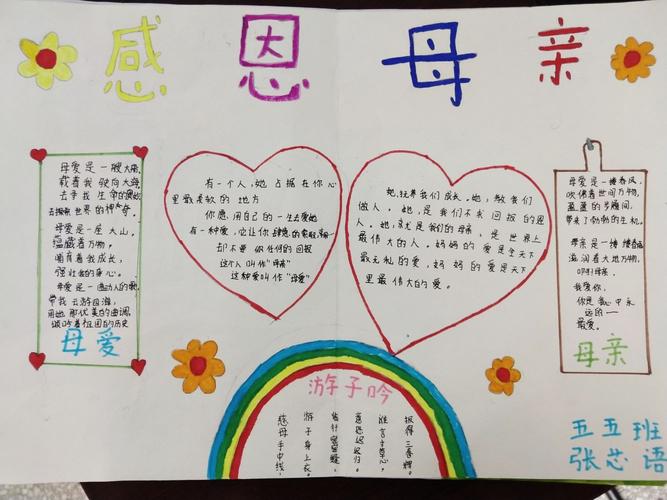 感恩母亲
母爱是一艘大船,
载着我驶向大海
去寻我生命的
去探索世界的神奇。
母爱是一座大山,
蕴藏着万物,
哺育着我成长,
强壮着的身心。
母爱是一曲动人的歌,
带我云游四海,
用她那优美的曲调,
倾吟着祖国的历史
母爱
有一个人,她占据在你心
里最柔软的地方
你愿用自己的一生去爱她
有一种爱,它让你肆意的索取、享用
却不要你任何的回报
这个人叫作“母亲”
这种爱叫作“母爱”
她,抚养我们成长。她,教我们
做人。她,是我们不求回报的恩
人。她,就是我们的母亲,是世界上
最伟大的人。妈妈的爱是全天下
最无私的爱,妈妈的爱是天下
里最伟大的爱。
母爱是一缕春风,
吹拂着世间万物,
盈盈的步履间,
带来了勃勃的生机。
母亲是一捧
滋润着大地万物,
母亲,
我爱你,
你是我心中永
远的一
最爱。
母亲
游子吟
慈母手中线,
游子身上衣。
临行密密缝,
意恐迟迟归。
谁言寸草心,
报得三春晖。
五五班
张芯语